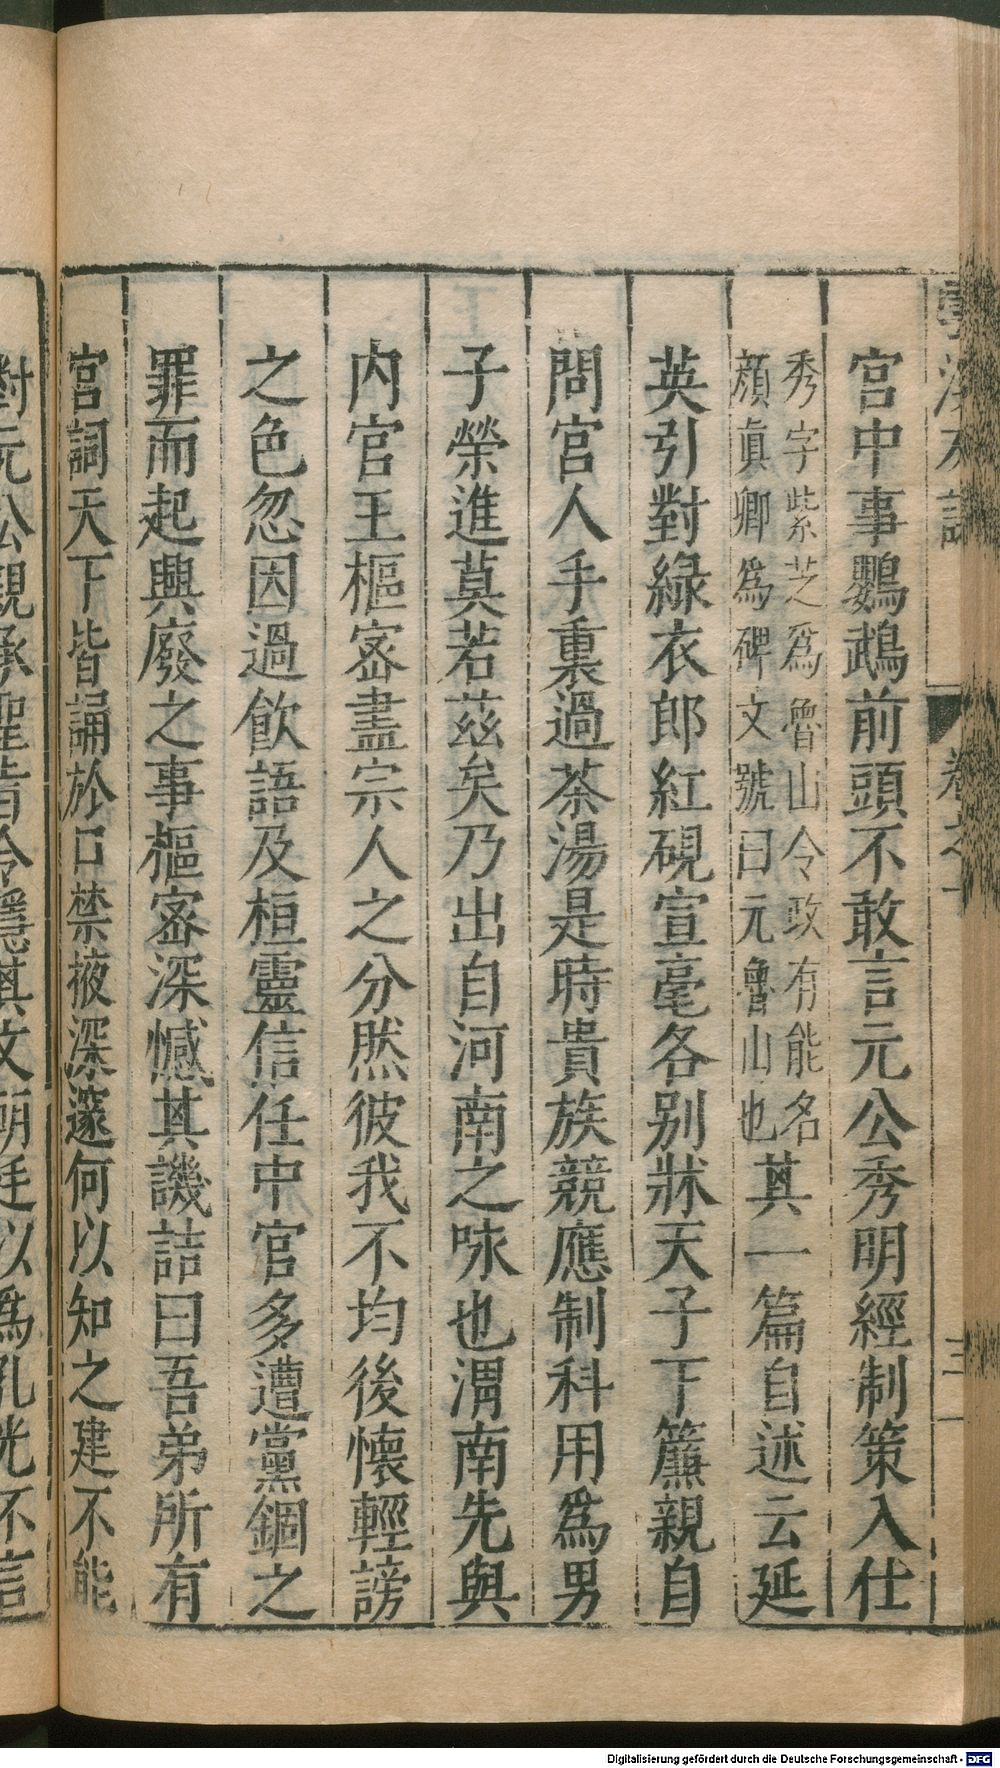 宮中事鸚鵡前頭不敢言元公秀明經制策入仕
秀字紫芝爲魯山令政有能名
顏眞卿爲碑文號曰元魯山也
其一篇自述云延
英引對綠衣郎紅硯宣毫各别牀天子下簾親自
問宮人手裏過茶湯是時貴族競應制科用爲男
子榮進莫若茲矣乃出自河南之咏也渭南先與
内官王樞宻盡宗人之分然彼我不均後懐輕謗
之色忽因過飲語及桓靈信任中官多遭黨錮之
罪而起興廢之事樞宻深憾其譏詰曰吾弟所有
宮詞天下皆誦於口禁掖深邃何以知之建不能
對元公親承聖旨令隱其文朝廷以爲孔光不言
雲溪友議
卷之
三
Digitalisierung gefördert durch die Deutsche Forschungsgemeinschaft - DFG